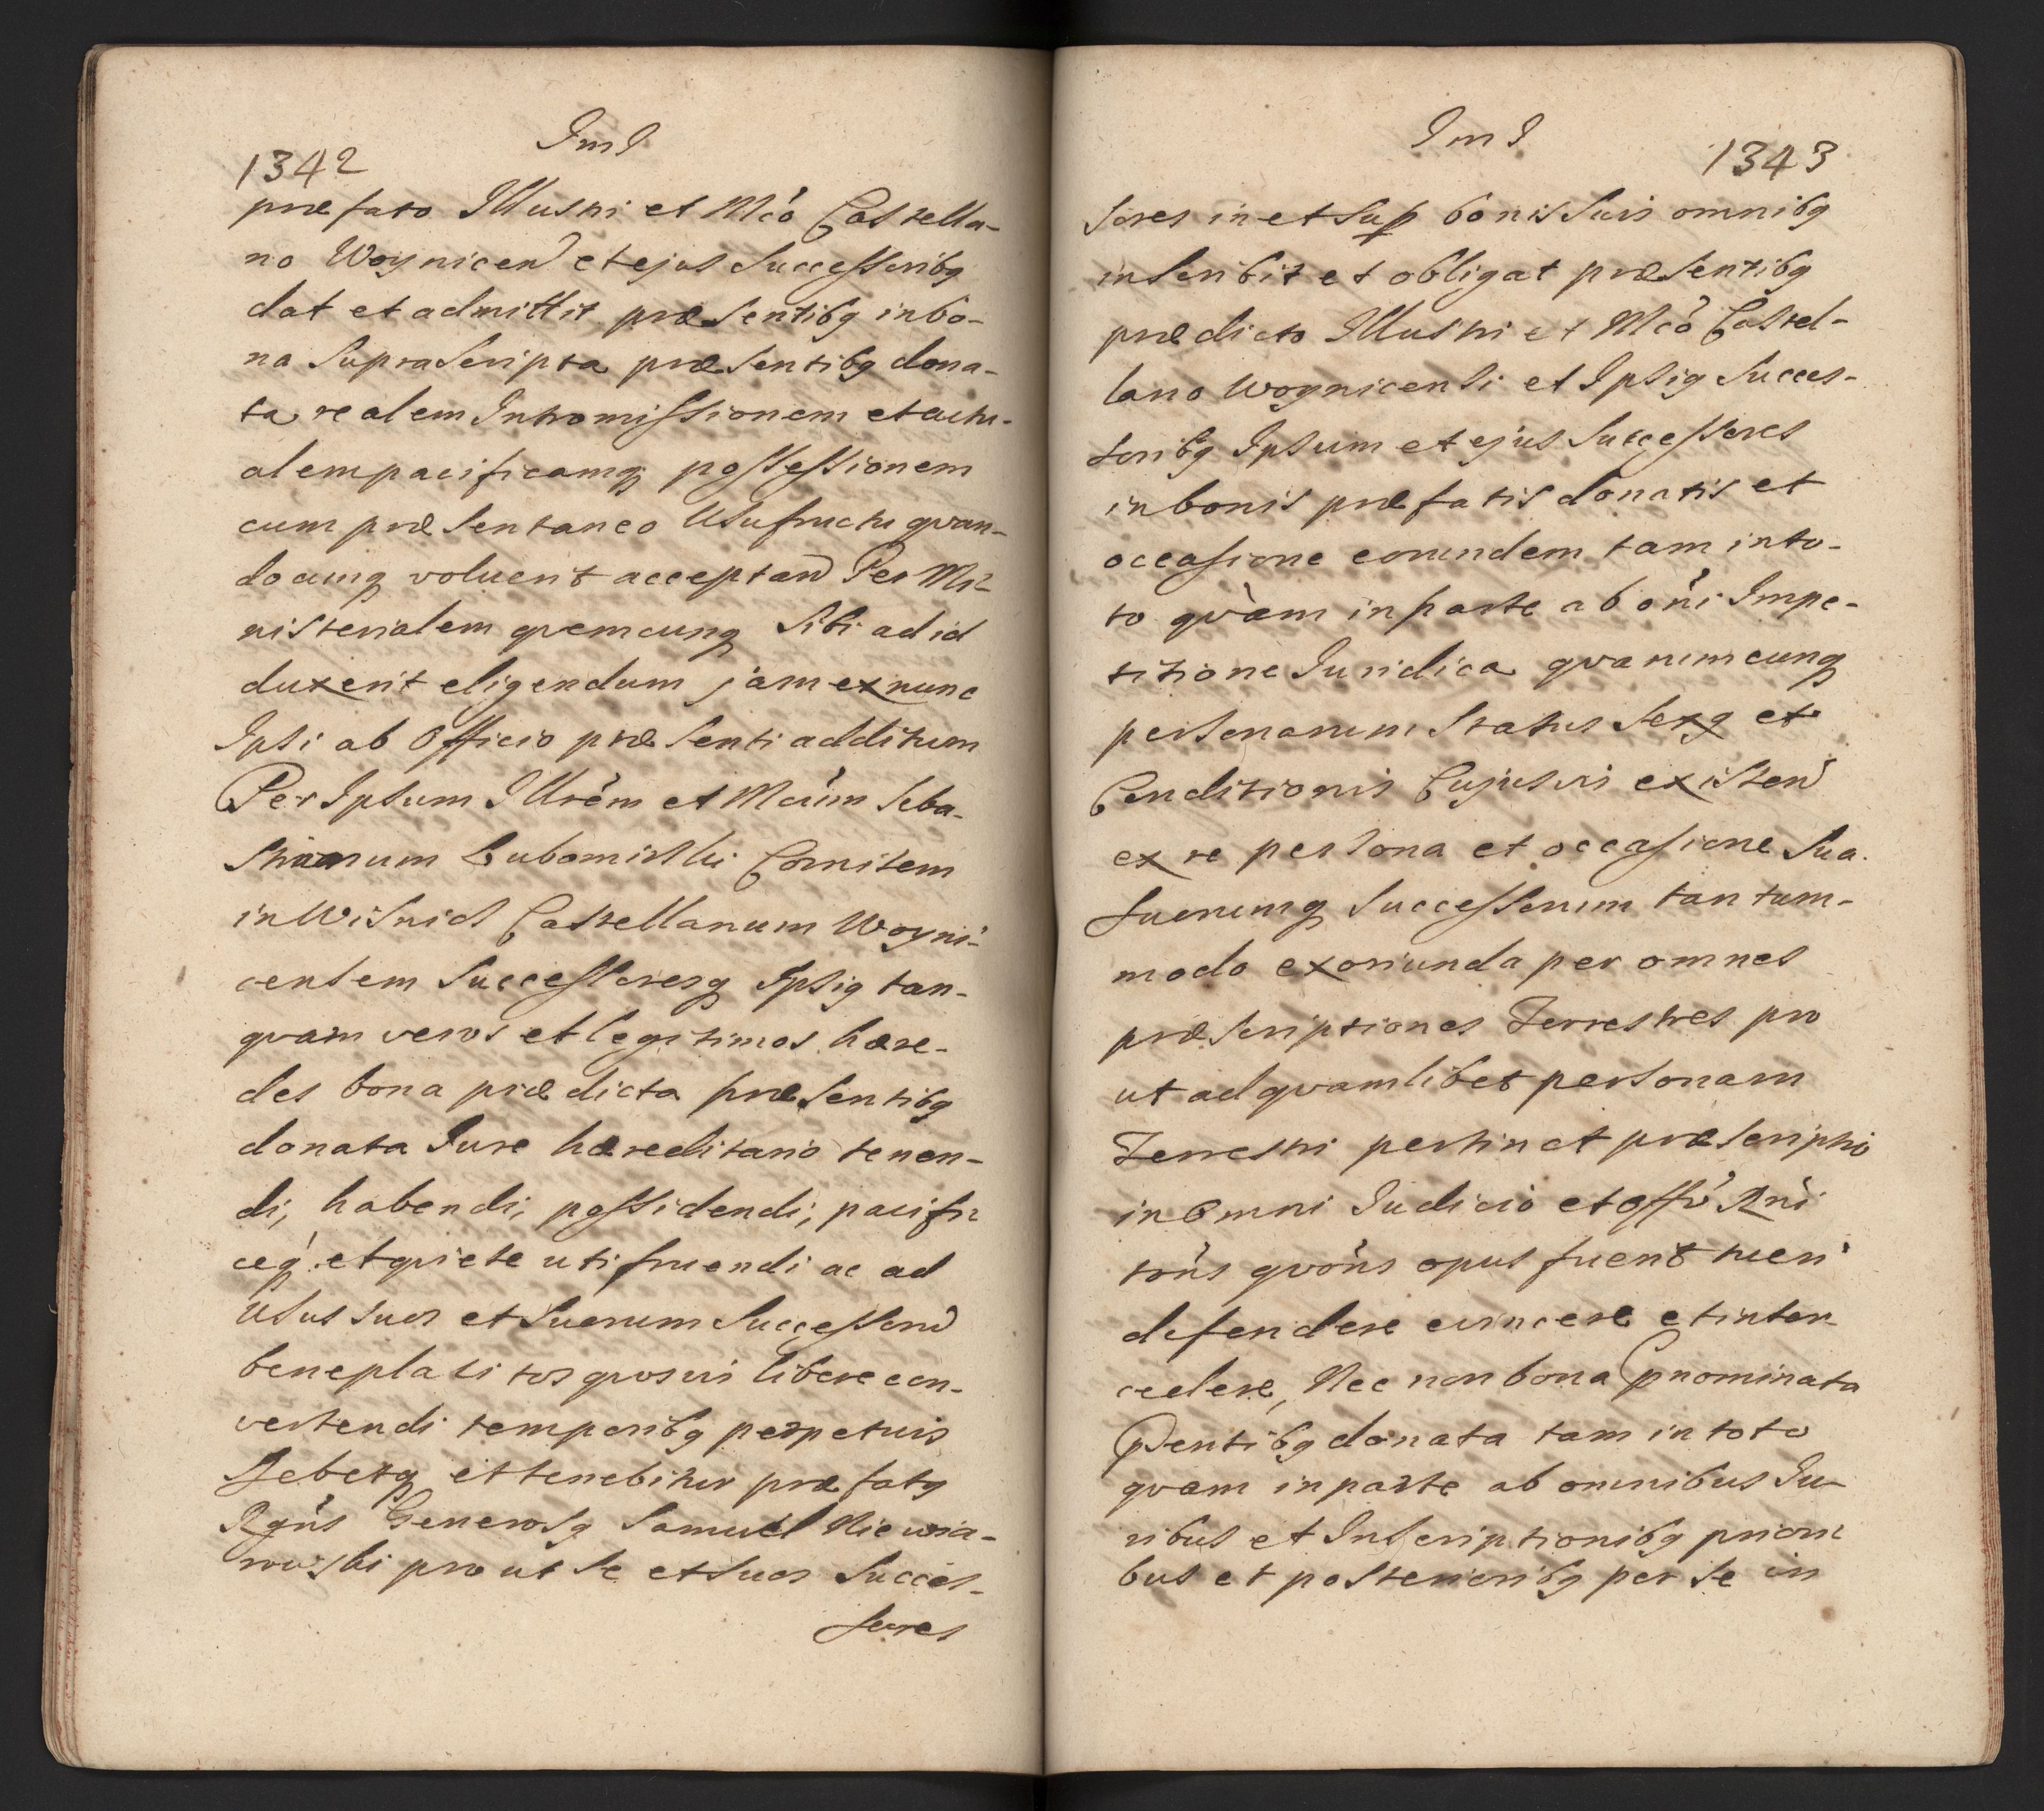 ImI
1342
præfato Illustri et Mco Castella-
no Woynicen et ejus Successoribq
dat et admittit præsentibq in bo-
na Suprascripta præsentibq dona-
ta realem Intromissionem et actu-
alem pacificamq possessionem
cum præsentaneo Usufructu qvan-
documq voluerit acceptan Per Mi-
nisterialem qvemcunq Sibi ad id
duxerit eligendum jam ex nunc
Ipsi ab Officio præsenti additum
Per Ipsum Illrem et Mcum Seba-
stianum Lubomirski Comitem
in Wisnicz Castellanum Woyni-
censem Successoresq Ipsiq tan-
qvam veros et legitimos hære-
des bona prædicta præsentibq
donata Jure hæreditario tenen-
di, habendi, possidendi, pacifi
ceq et qviete utifruendi ac ad
Usus suos et Suorum Successorum
beneplacitos qvosvis libere con-
vertendi temporibq perpetuis
Debetq et tenebitur præfatq
Rgns Generosq Samuel Niewia-
rowski prout se et suos Succes-
sores
ImI
1343
sores in et sup bonis Suis omnibq
inscribit et obligat præsentibq
prædicto Illustri et Mco Castel-
lano Woynicensi et Ipsiq Succes-
soribq Ipsum et ejus Successores
in bonis præfatis donatis et
occasione eorundem tam in to-
to qvam in parte ab oni Impe-
titione Juridica qvarumcunq
personarum Status Sexq et
Conditionis Cujusvis existen
ex re persona et occasione Sua
Suorumq Successorum tantum-
modo exoriunda per omnes
præscriptiones Terrestres pro
ut ad qvamlibet personam
Terrestri pertinet præscriptio
in Omni Judicio et Offo Rni
tons qvons opus fuerit tueri
defendere evincere et inter
cedere, Nec non bona Pnominata
Psentibq donata tam in toto
qvam in parte ab omnibus Ju-
ribus et Inscriptionibq priori
bus et posterioribq per se in